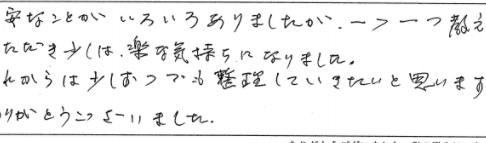 安なことがいろいろありましたが、一つ一つ教え
ただき少しは、楽な気持ちになりました。
れからは少しずつでも整理していきたいと思います
りがとうございました。